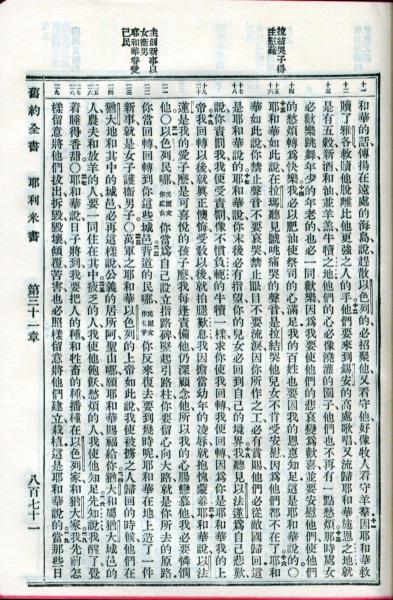 拉結哭子得
主慰藉
主創新事以
女衛男
耶和華眷愛
己民
和華的話傳揚在遠處的海島說趕散以色列的必招聚他又看守他好像牧人看守羊羣因耶和華救
贖了雅各救贖他脫離比他更强之人的手他們要來到錫安的高處歌唱又流歸耶和華施恩之地就
是有五穀新酒和油並羊羔牛犢之地他們的心必像澆灌的園子他們也不再有一點愁煩那時處女
必歡樂跳舞年少的年老的也必一同歡樂因爲我要使他們的悲哀變爲歡喜並要安慰他們使他們
的愁煩轉爲快樂我必以肥油使祭司的心滿足我的百姓也要因我的恩惠知足這是耶和華說的○
耶和華如此說在拉瑪聽見號咷痛哭的聲音是拉結哭他兒女不肯受安慰因爲他們都不在了耶和
華如此說你禁止聲音不要哀哭禁止眼目不要流淚因你所作之工必有賞賜他們必從敵國歸回這
是耶和華說的耶和華說你末後必有指望你的兒女必回到自己的境界我聽見以法蓮爲自己悲歎
說你責罰我我便受責罰像不慣負軛的牛犢一樣求你使我回轉我便回轉因爲你是耶和華我的上
帝我回轉以後就眞正懊悔受教以後就拍腿歎息我因擔當幼年的凌辱就抱愧蒙羞耶和華說以法
蓮是我的愛子麼是可喜悅的孩子麼我每逢責備他仍深顧念他所以我的心腸戀慕他我必要憐憫
他○以色列民哪民原文作處女你當爲自己設立指路碑豎起引路柱你要留心向大路就是你所去的原路
你當回轉回轉到你這些城邑背道的民哪民原文作女子你反來復去要到幾時呢耶和華在地上造了一件
新事就是女子護衛男子○萬軍之耶和華以色列的上帝如此說我使被擄之人歸回的時候他們在
猶大地和其中的城邑必再這樣說公義的居所阿聖山哪願耶和華賜福給你猶大和屬猶大城邑的
人農夫和放羊的人要一同住在其中疲乏的人我使他飽飫愁煩的人我使他知足先知說我醒了覺
着睡得香甜○耶和華說日子將到我要把人的種和牲畜的種播種在以色列家和猶大家我先前怎
樣留意將他們拔出拆毀毀壞傾覆苦害也必照樣留意將他們建立栽植這是耶和華說的當那些日
舊約全書 耶利米書 第三十一章 八百七十一